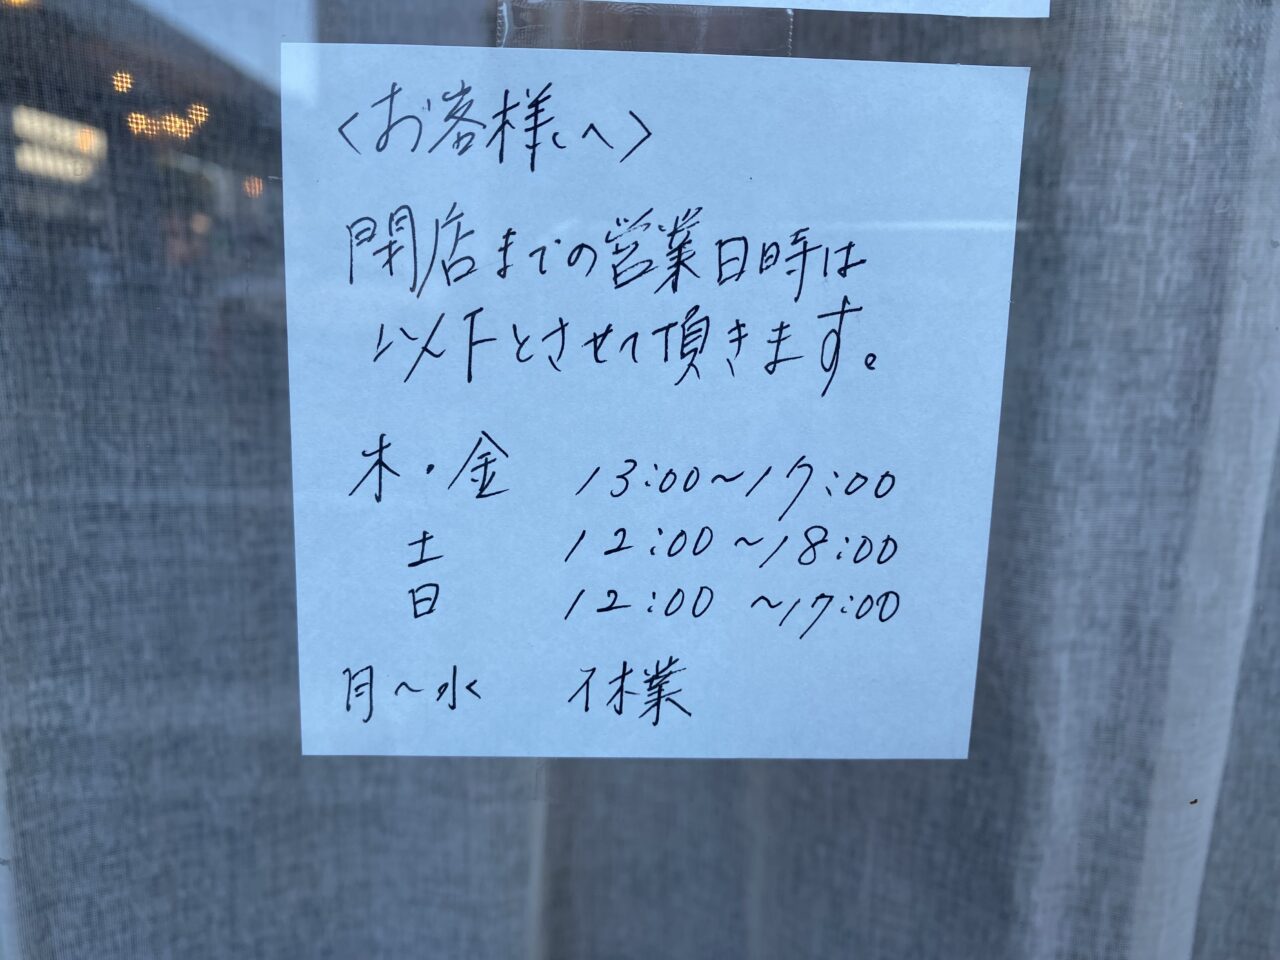 〈お客様へ〉
閉店までの営業日時は
以下とさせて頂きます。
木・金 13:00〜17:00
土 12:00〜18:00
日 12:00〜17:00
月〜水 休業